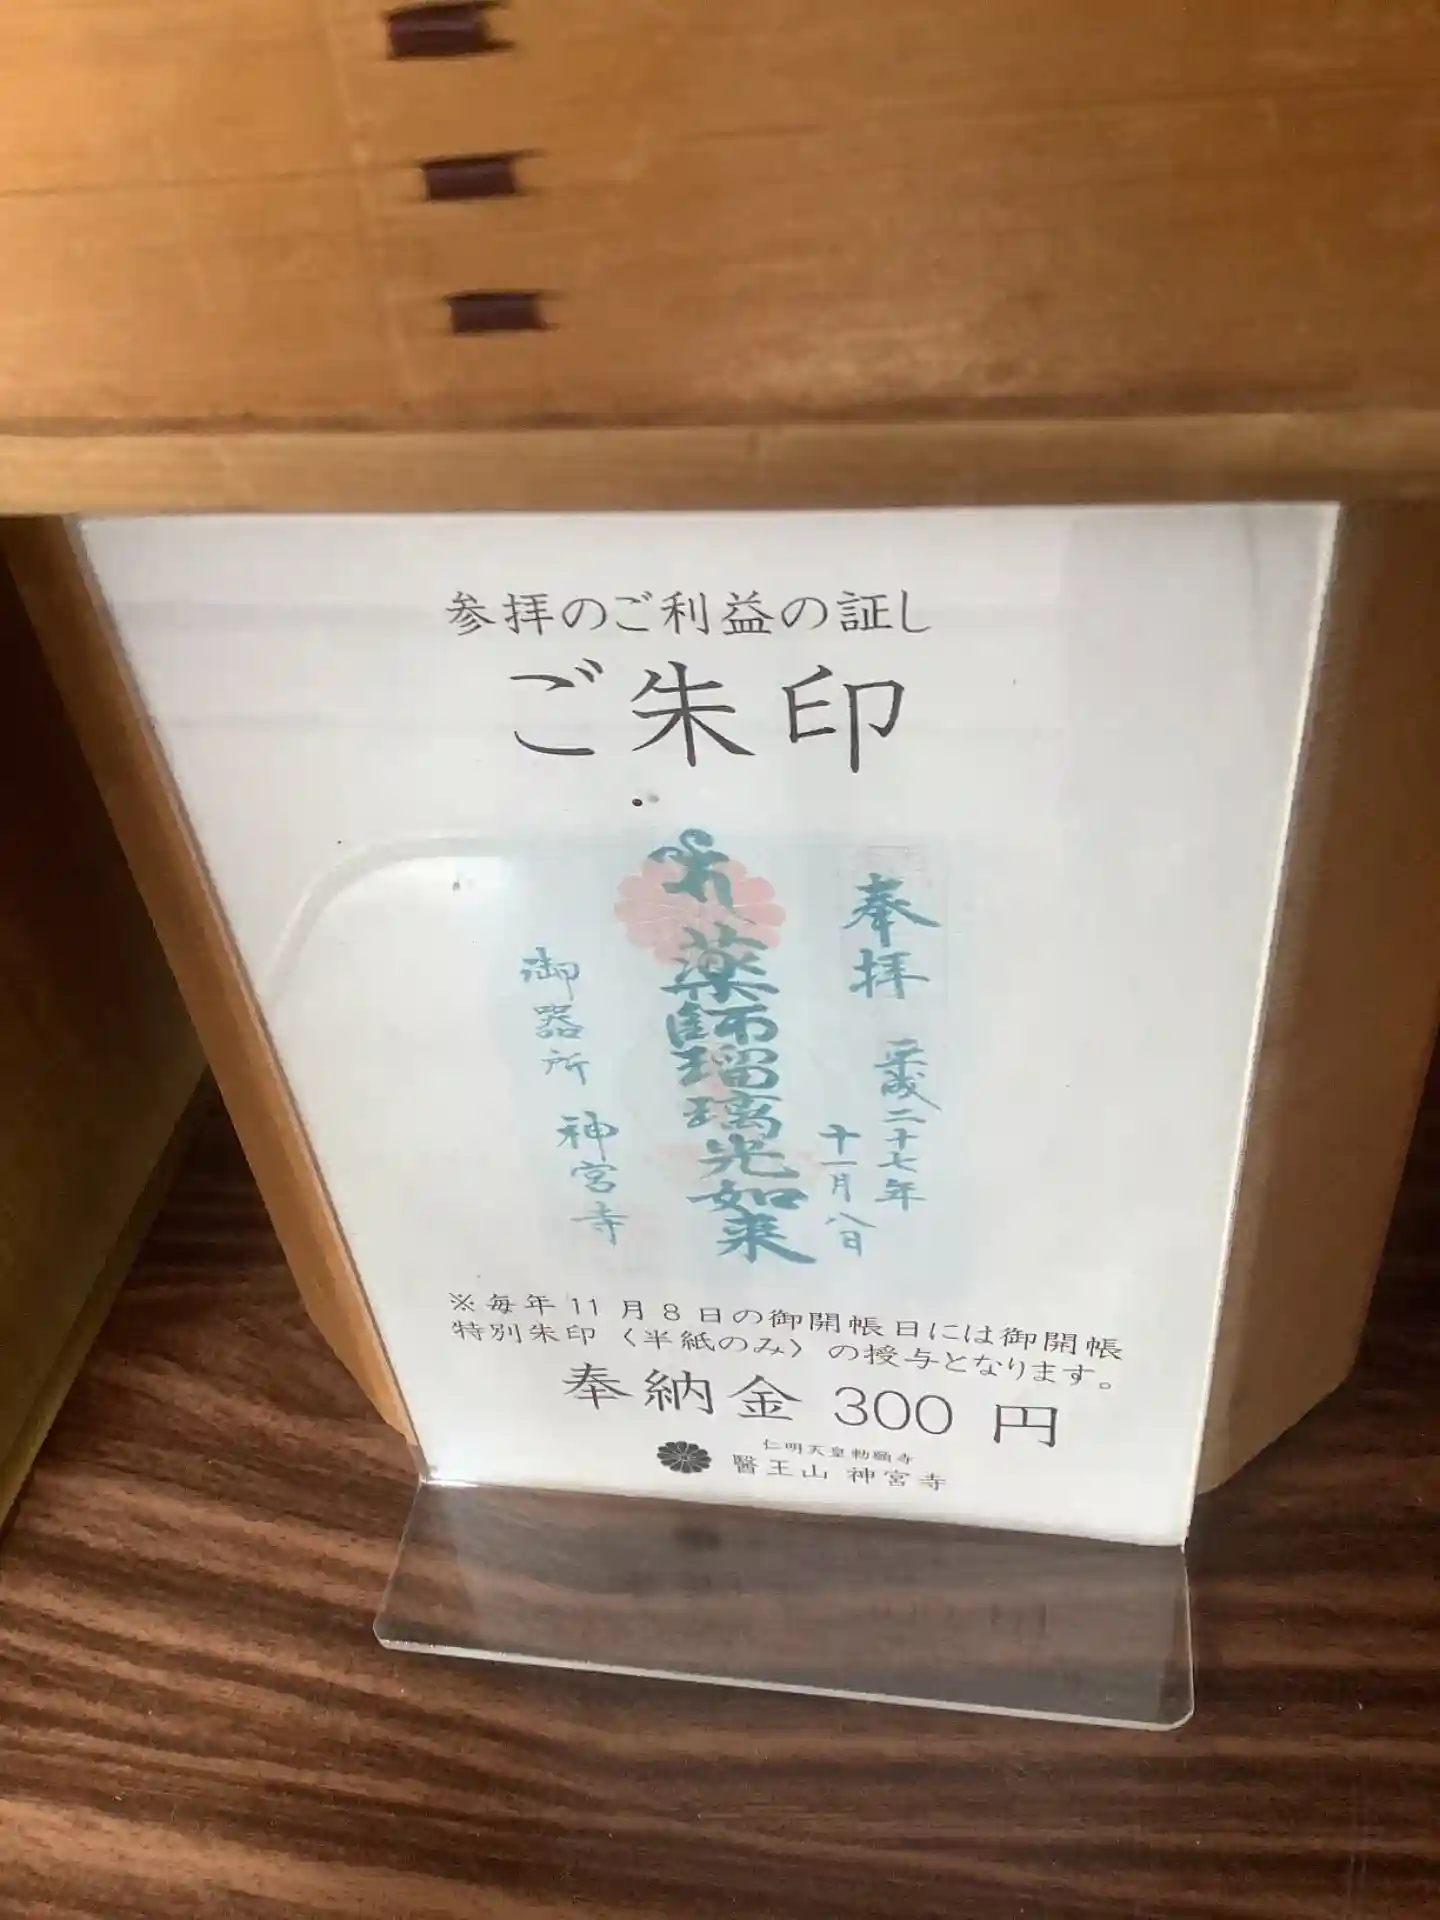 参拝のご利益の証し
ご朱印
奉拝
平成二十七年
十一月八日
薬師瑠璃光如来
御器所 神宮寺
※毎年11月8日の御開帳日には御開帳
特別朱印〈半紙のみ〉の授与となります。
奉納金 300 円
仁明天皇勅願寺
醫王山 神宮寺